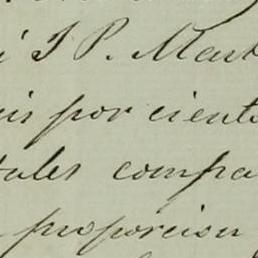 á J. P. Mart
is por ciento
tales compa
proporcion